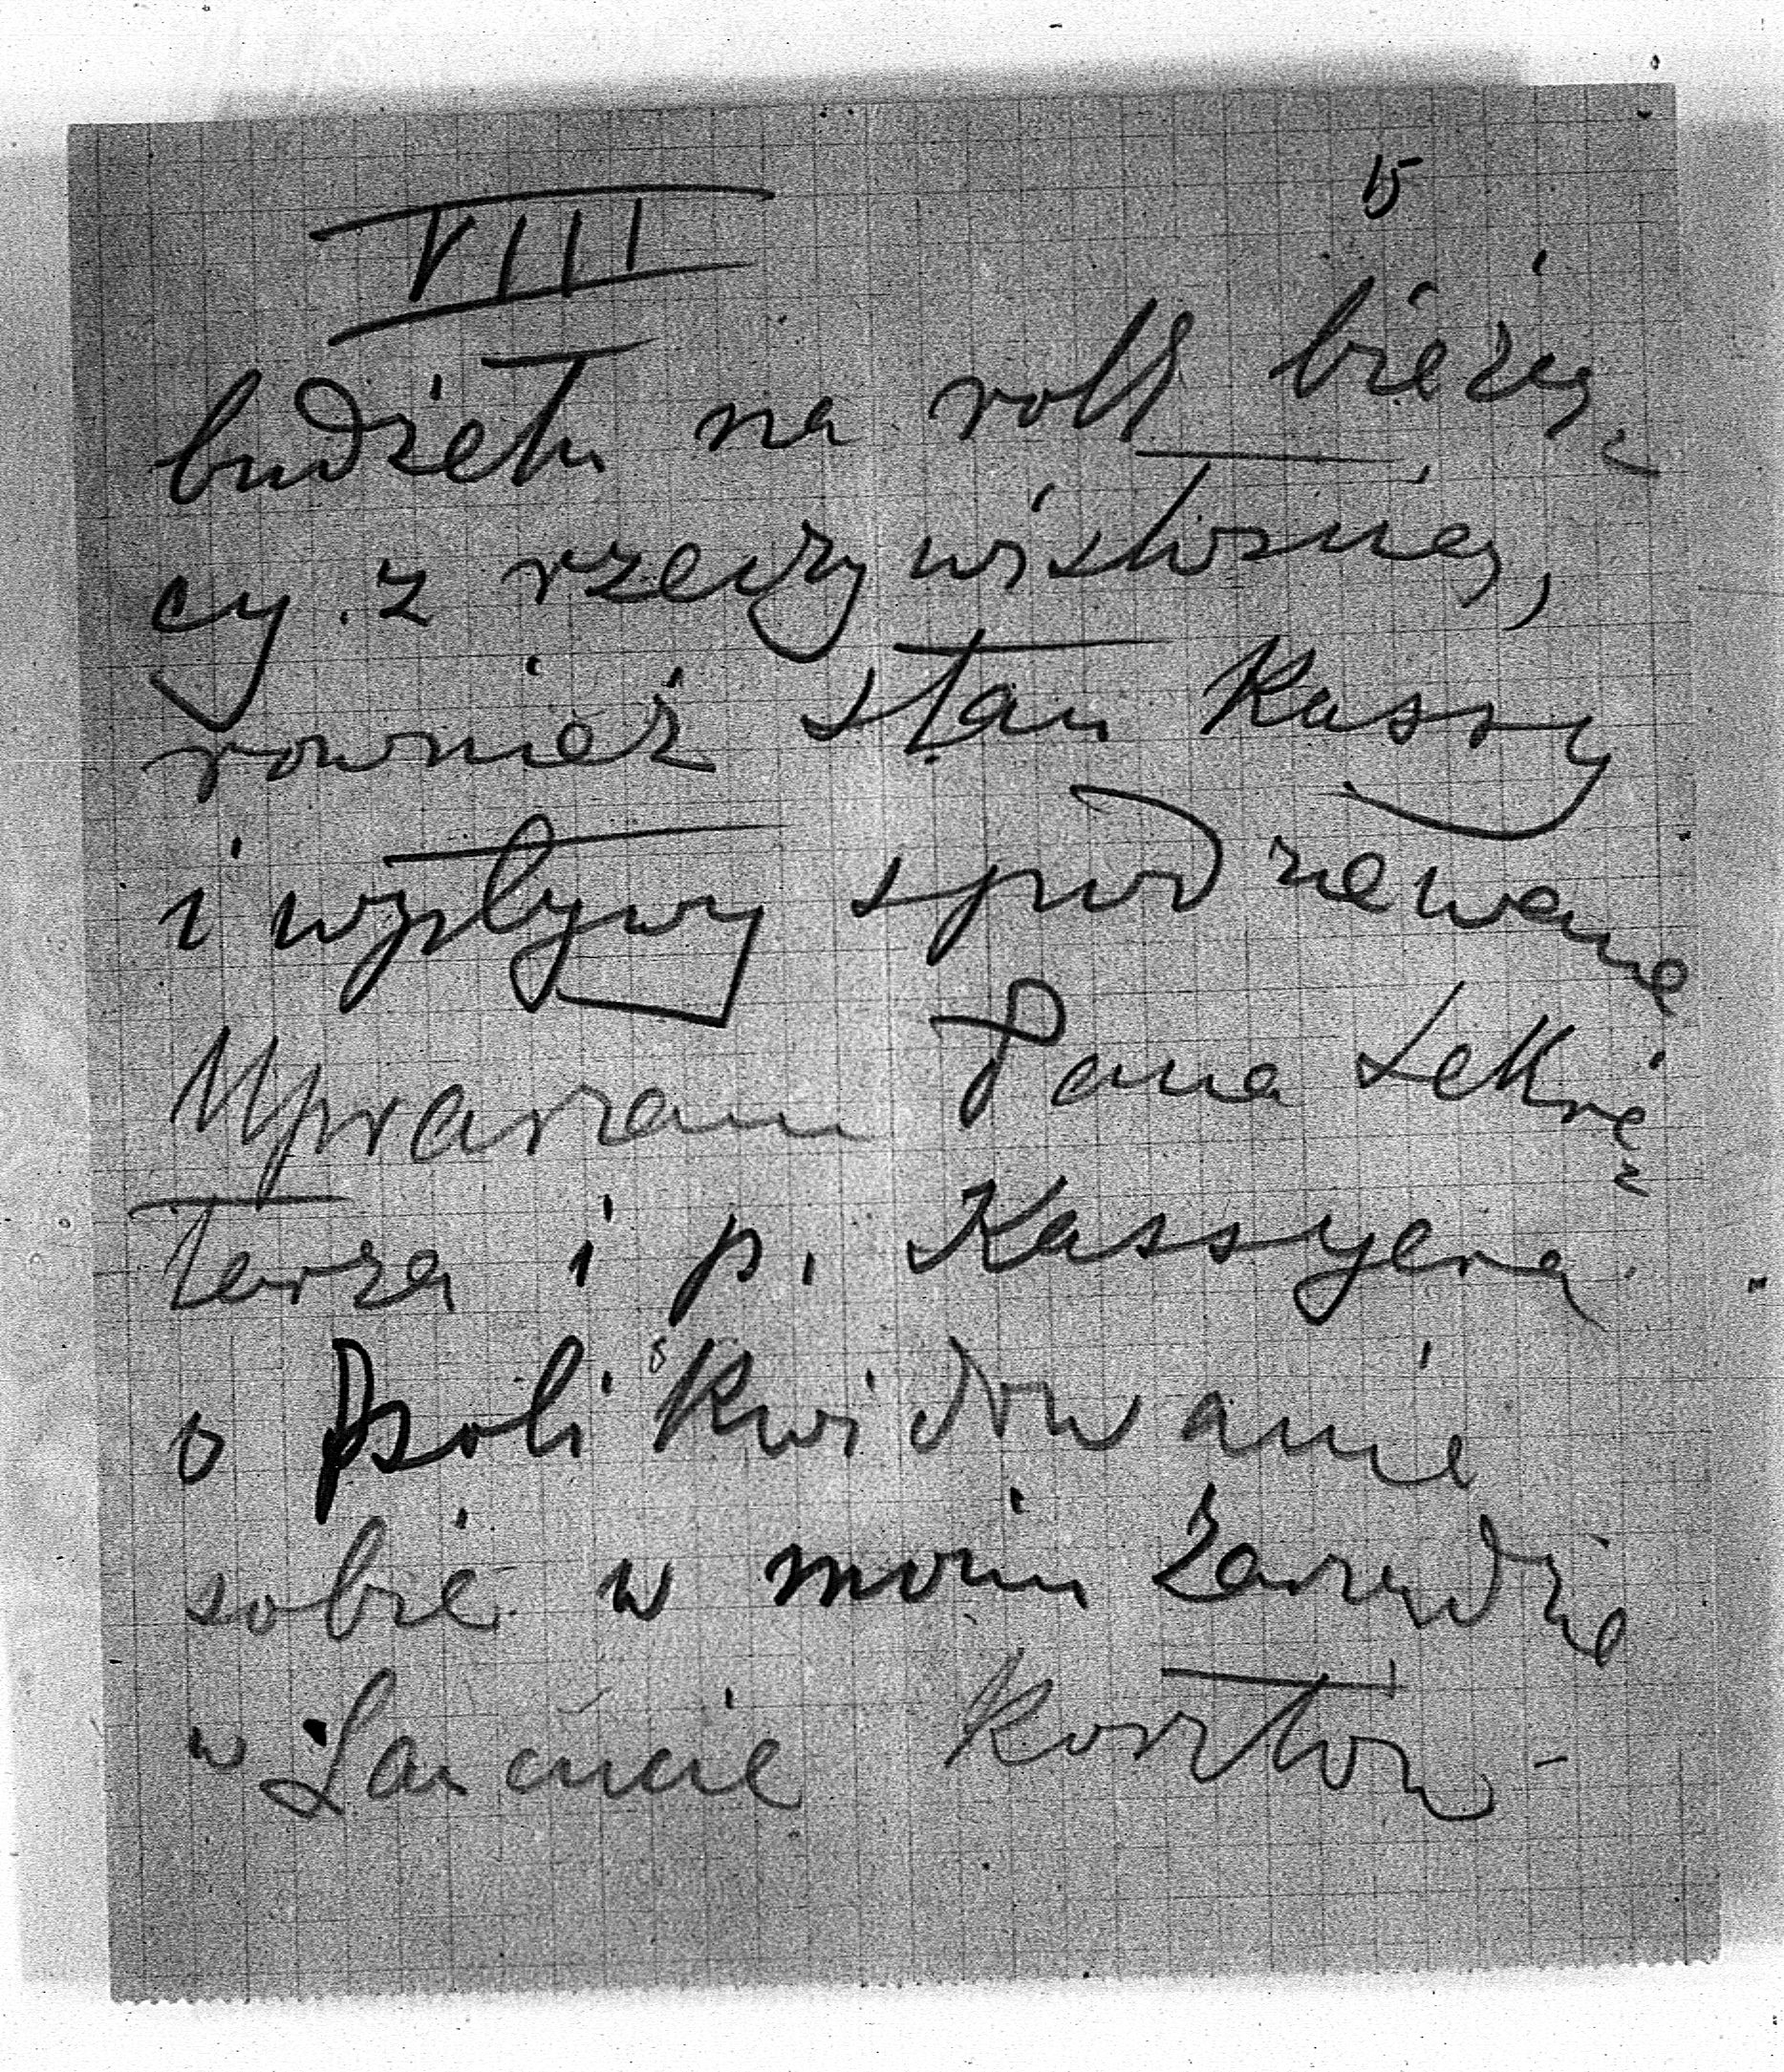 15
VIII
budżetu na rok bieżą-
cy z rzeczywistością,
rownież stan Kassy
i wpływy spodziewane
Upraszam Pana Sekre-
tarza i p. Kassyera
o zlikwidowanie
sobie w moim Zarządzie
w Łańcucie Kosztów -